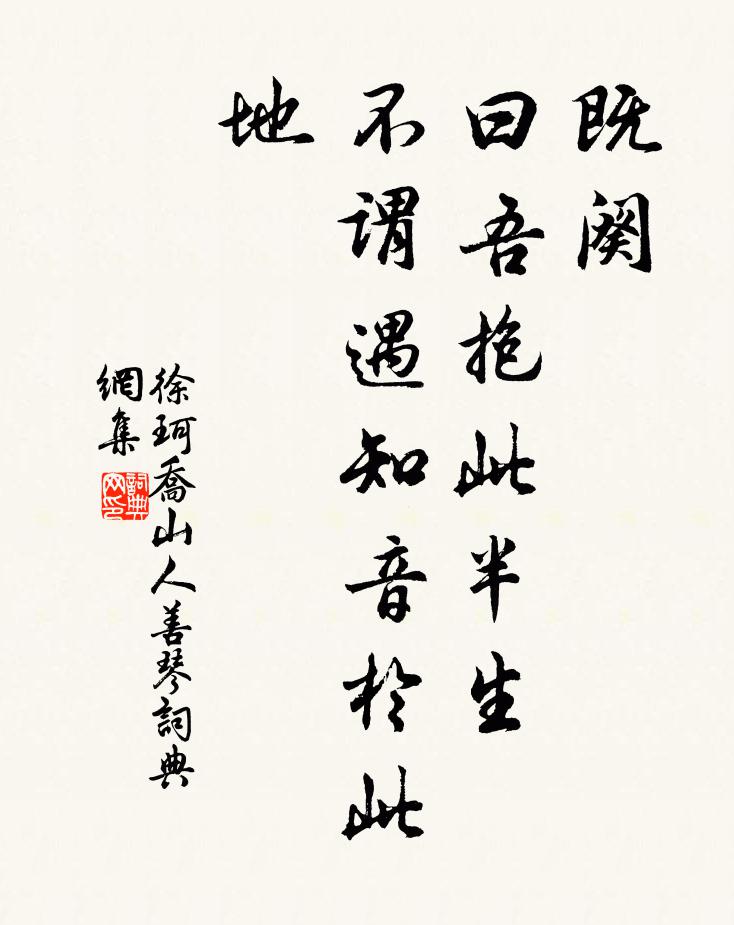 既阕
曰吾抱此半生
不谓遇知音於此
地
徐珂喬山人善琴詞典
網集
詞典
网印